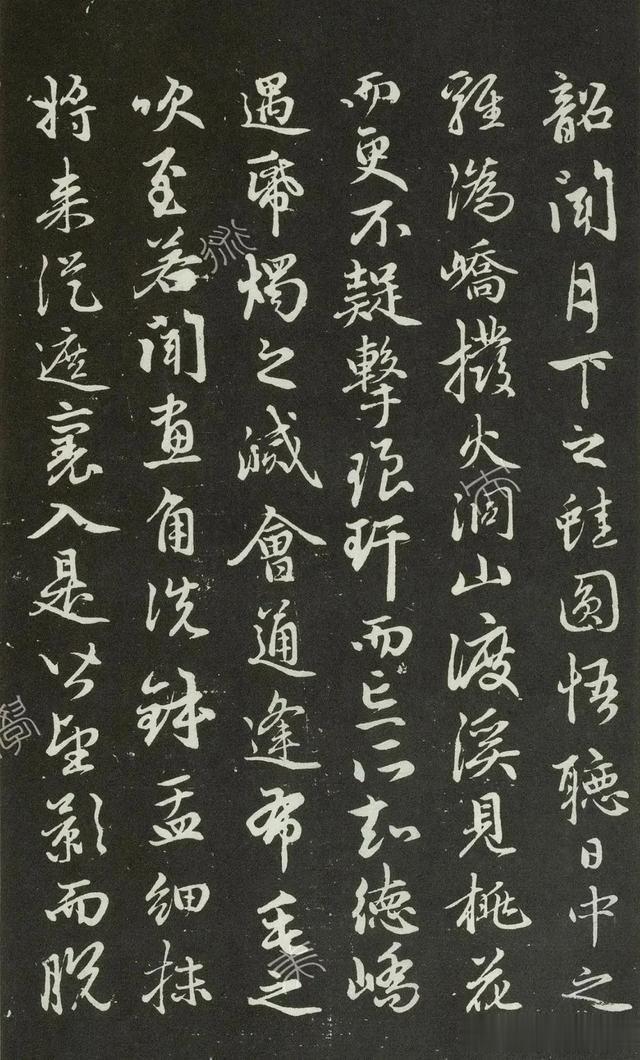 韶聞月下之蛙圓悟聽日中之
雞溈嶠撥火洞山渡溪見桃花
而更不疑擊琅玕而亡所知德嶠
遇帋燭之滅會通逢布毛之
吹至若聞畫角洗鉢盂細抹
將来從遮裏入是以望影而脫